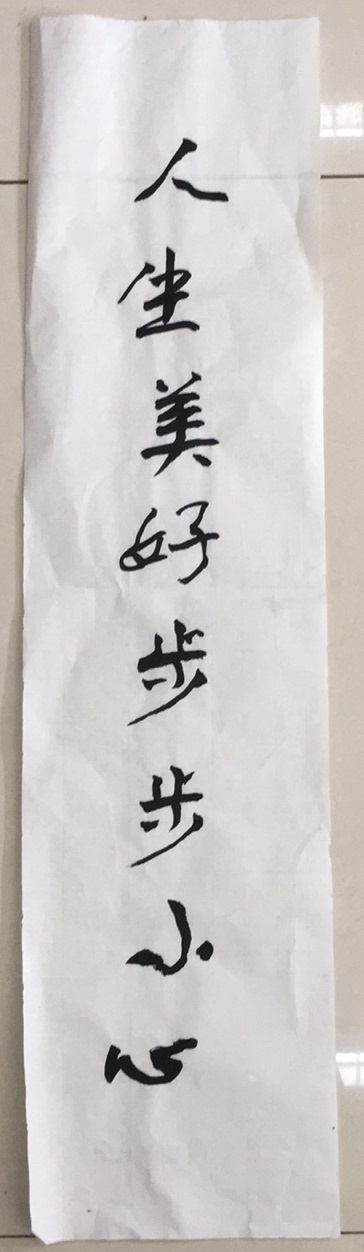 人生美好步步小心